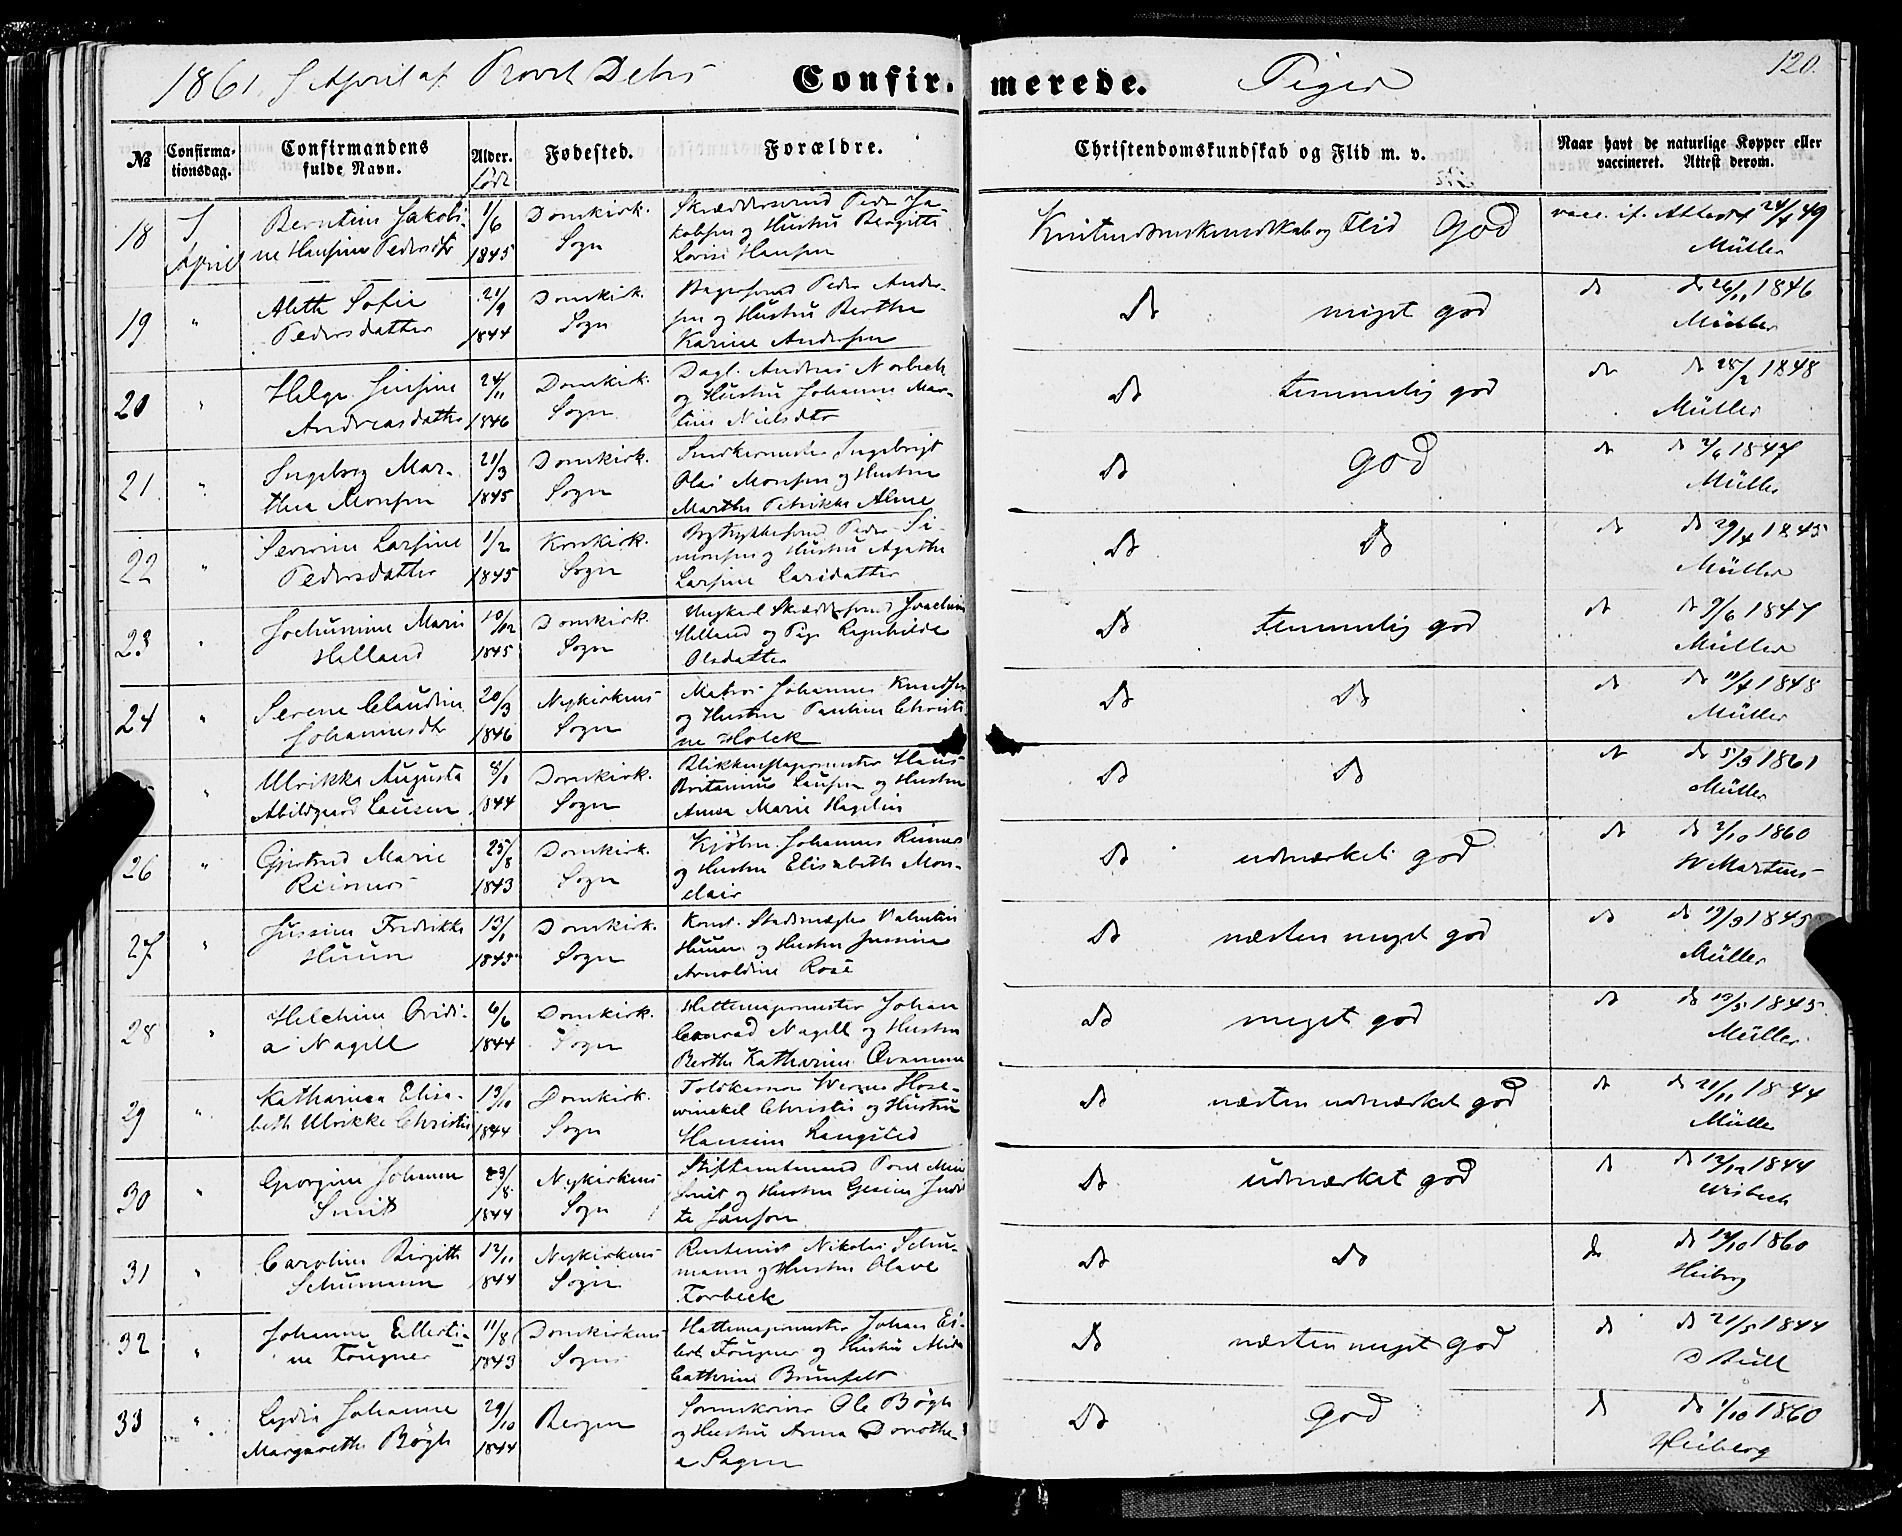 1861. 7 April af Provst Dehs
Confirmerede.
Piger
120.
№
Confirma-
tionsdag.
Confirmandens
fulde Navn.
Alder.
født
Fødested.
Forældre.
Christendomskundskab og Flid m. v.
Naar havt de naturlige Kopper eller
vaccineret. Attest derom.
18 7 Berntine Jakobi- 1/6 Domkirk. Skræddersvend Peder Ja-
April ne Hansine Pedersdtr 1845 Sogn kobsen og Hustru Bergitte
Lovise Hansen
Kristendomskundskab og Flid God vacc. if. Attest 24/4 49
Müller
19 " Aleth Sofie 21/9 Domkirk. Bagersvend Peder Ander-
Pedersdatter 1844 Sogn sen og Hustru Berthe
Karine Andersen
do meget god do do 26/11 1846
Müller
20 " Helge Jensine 24/11 Domkirk. Dagl. Andreas Norbech
Andreasdatter 1846 Sogn og Hustru Johanne Mar-
tine Nielsdtr
do temmelig god do do 28/2 1848
Müller
21. " Ingeborg Mar- 21/3 Domkirk. Snedkermester Ingebrigt
thea Monsen 1845 Sogn Olai Monsen og Hustru
Marthe Petrikke Alme
do god do do 7/6 1847
Müller
22 " Severine Larsine 1/2 Korskirk. Bogtrykkersvend Peder Si-
Pedersdatter 1845 Sogn monsen og Hustru Agathe
Larsine Larsdatter
do do do do 29/4 1845
Müller
23 " Jochumine Marie 10/12 Domkirk. Ungkarl Skræddersvend Joachim
Helland 1845 Sogn Helland og Pige Ragnhilde
Olsdatter
do temmelig god do do 9/6 1847
Müller
24 " Serene Claudine 20/3 Nykirkens Matros Johannes Knudsen
Johannesdtr 1846 Sogn og Hustru Pauline Christi
ne Holck
do do do do 11/7 1848
Müller
" Ulrikke Augusta 8/1 Domkirk. Blikkenslagermester Hans
Abildgaard Lausen 1844 Sogn Britanius Lausen og Hustru
Anna Marie Hagelin
do do do do 5/3 1861
Müller
26 " Gjertrud Marie 25/8 Domkirk. Kjøbm. Johannes Reimers
Reimers 1843 Sogn og Hustru Elisabeth Mon-
clair
do udmærket god do do 2/10 1860
W Martens
27 " Jussine Fredrikke 13/1 Domkirk. Konst. Stadsmægler Valentin
Huun 1845 Sogn Huun og Hustru Jussine
Arnoldine Rose
do næsten meget god do do 19/3 1845
Müller
28 " Helchine Ovidi- 6/6 Domkirk. Hattemagermester Johan
a Nagell 1844 Sogn Conrad Nagell og Hustru
Berthe Katharine Qvamme
do meget god do do 13/5 1845
Müller
29 " Katharina Elisa- 13/10 Domkirk. Toldkasserer Werner Hose-
beth Ulrikke Christie 1844 Sogn winckel Christie og Hustru
Hansine Langsted
do næsten udmærket god do do 21/11 1844
Müller
30 " Georgine Johanne 23/8 Nykirkens Stiftamtmand
Smit 1844 Sogn Smit og Hustru Gesine Judi
te Janson
do udmærket god do do 12/12 1844
Wisbech
31 " Caroline Birgitte 12/11 Nykirkens Rentenist Nikolai Schu-
Schumann 1844 Sogn mann og Hustru Olave
Torbeck
do do do do 12/10 1860
Heiberg
32 " Johanne Ellerti- 11/8 Domkirkens Hattemagermester Johan
ne Fougner 1843 Sogn Fougner og Hustru
Cathrine Brunfelt
do næsten meget god do do 21/5 1844
D Bull
33 " Lydia Johanne 29/10 Bergen Sorenskriver Ole Bøgh
Margarethe Bøgh 1844 og Hustru Anna Dorothe
a Sagen
do god do do 1/10 1860
Heiberg